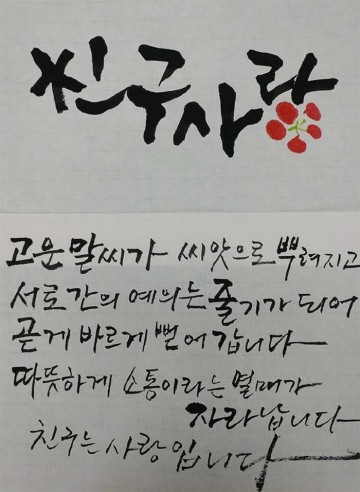 친구사랑
고운 말씨가 씨앗으로 뿌려지고
서로간의 예의는 줄기가 되어
곧게 바르게 뻗어 갑니다
따뜻하게 소통이라는 열매가
자라납니다
친구는 사랑입니다